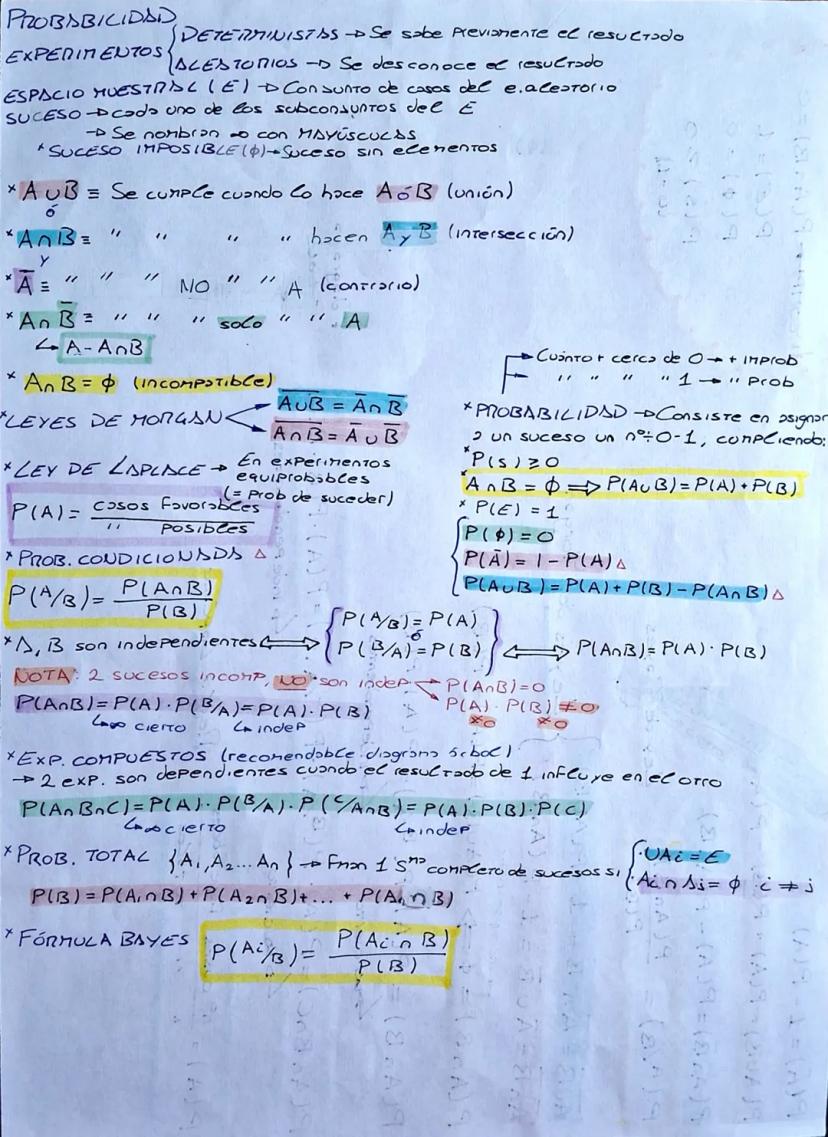 PROBABILIDAD
EXPERIMENTOS { DETERMINISTAS → Se sabe previamente el resultado
ALEATORIOS → Se desconoce el resultado
ESPACIO MUESTRAL (E) → Conjunto de casos del e.aleatorio
SUCESO → cada uno de los subconjuntos del E
→ Se nombran ∞ con MAYÚSCULAS
* SUCESO IMPOSIBLE (ϕ) → Suceso sin elementos
* A∪B ≡ Se cumple cuando lo hace A ó B (unión)
ó
* A∩B ≡ " " " " hacen A y B (intersección)
y
* A̅ ≡ " " " NO " " A (contrario)
* A∩B̅ ≡ " " " solo " " A
↳ A - A∩B
* A∩B = ϕ (incompatible)
* LEYES DE MORGAN
\overline{A∪B} = A̅∩B̅
\overline{A∩B} = A̅∪B̅
* LEY DE LAPLACE → En experimentos
equiprobables
(= Prob de suceder)
P(A) = casos favorables / " posibles
Cuanto + cerca de 0 → + improb
" " " " 1 → " prob
* PROBABILIDAD → Consiste en asignar
a un suceso un nº÷0-1, cumpliendo:
* P(S) ≥ 0
A∩B = ϕ ⟹ P(A∪B) = P(A) + P(B)
* P(E) = 1
P(ϕ) = 0
P(A̅) = 1 - P(A) △
P(A∪B) = P(A) + P(B) - P(A∩B) △
* PROB. CONDICIONADA △
P(A/B) = P(A∩B) / P(B)
* A, B son independientes ⟺ { P(A/B) = P(A)
ó
P(B/A) = P(B) } ⟺ P(A∩B) = P(A) · P(B)
NOTA: 2 sucesos incomp, NO son indep → P(A∩B) = 0
→ P(A) · P(B) ≠ 0
≠0 ≠0
P(A∩B) = P(A) · P(B/A) = P(A) · P(B)
↳ ∞ cierto ↳ indep
* EXP. COMPUESTOS (recomendable diagrama árbol)
→ 2 exp. son dependientes cuando el resultado de 1 influye en el otro
P(A∩B∩C) = P(A) · P(B/A) · P(C/A∩B) = P(A) · P(B) · P(C)
↳ ∞ cierto ↳ indep
* PROB. TOTAL {A₁, A₂... An} → Fman 1 Sᵐᵃ completo de sucesos si { · ∪Ai = E
· Ai ∩ Aj = ϕ i ≠ j
P(B) = P(A₁∩B) + P(A₂∩B) + ... + P(An ∩ B)
* FÓRMULA BAYES P(Ai/B) = P(Ai ∩ B) / P(B)